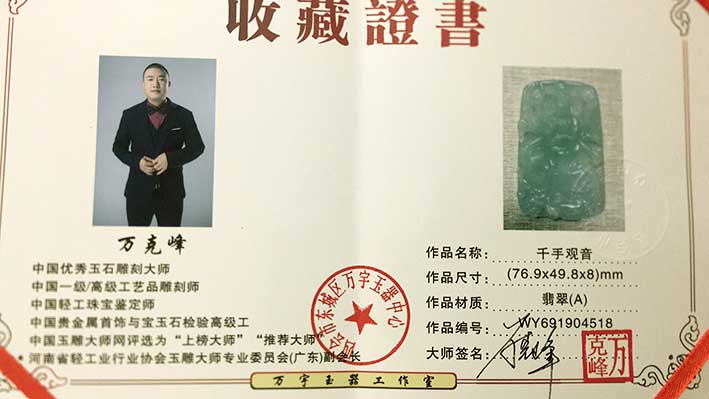 收藏證書
万克峰
中国优秀玉石雕刻大师
中国一级/高级工艺品雕刻师
中国轻工珠宝鉴定师
中国贵金属首饰与宝玉石检验高级工
中国玉雕大师网评选为“上榜大师”“推荐大师”
河南省轻工业行业协会玉雕大师专业委员会(广东)副会长
作品名称：千手观音
作品尺寸：(76.9x49.8x8)mm
作品材质：翡翠(A)
作品编号：WY691904518
大师签名：
万克峰
会市东城区万宇玉器中心
万宇玉器工作室